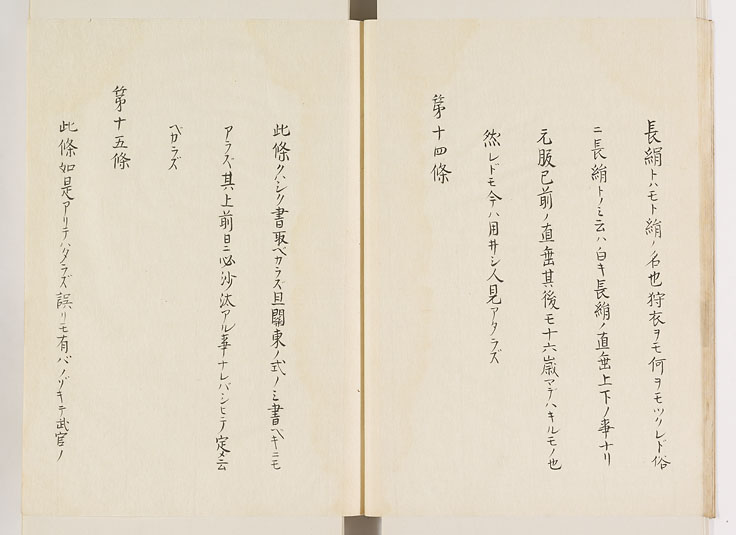 長絹トハモト絹ノ名也狩衣ヲモ何ヲモツクレド俗
ニ長絹トノミ云ハ白キ長絹ノ直垂上下ノ事ナリ
元服已前ノ直垂其後モ十六歳マデハキルモノ也
然レドモ今ハ用井シ人見アタラズ
第十四條
此條クハシク書取ベカラズ且關東ノ式ノミ書ベキニモ
アラズ其上前日ニ必沙汰アル事ナレバシヒテ定メ云
ベカラズ
第十五條
此條如是アリテハタラズ誤リモ有バノゾキテ武官ノ